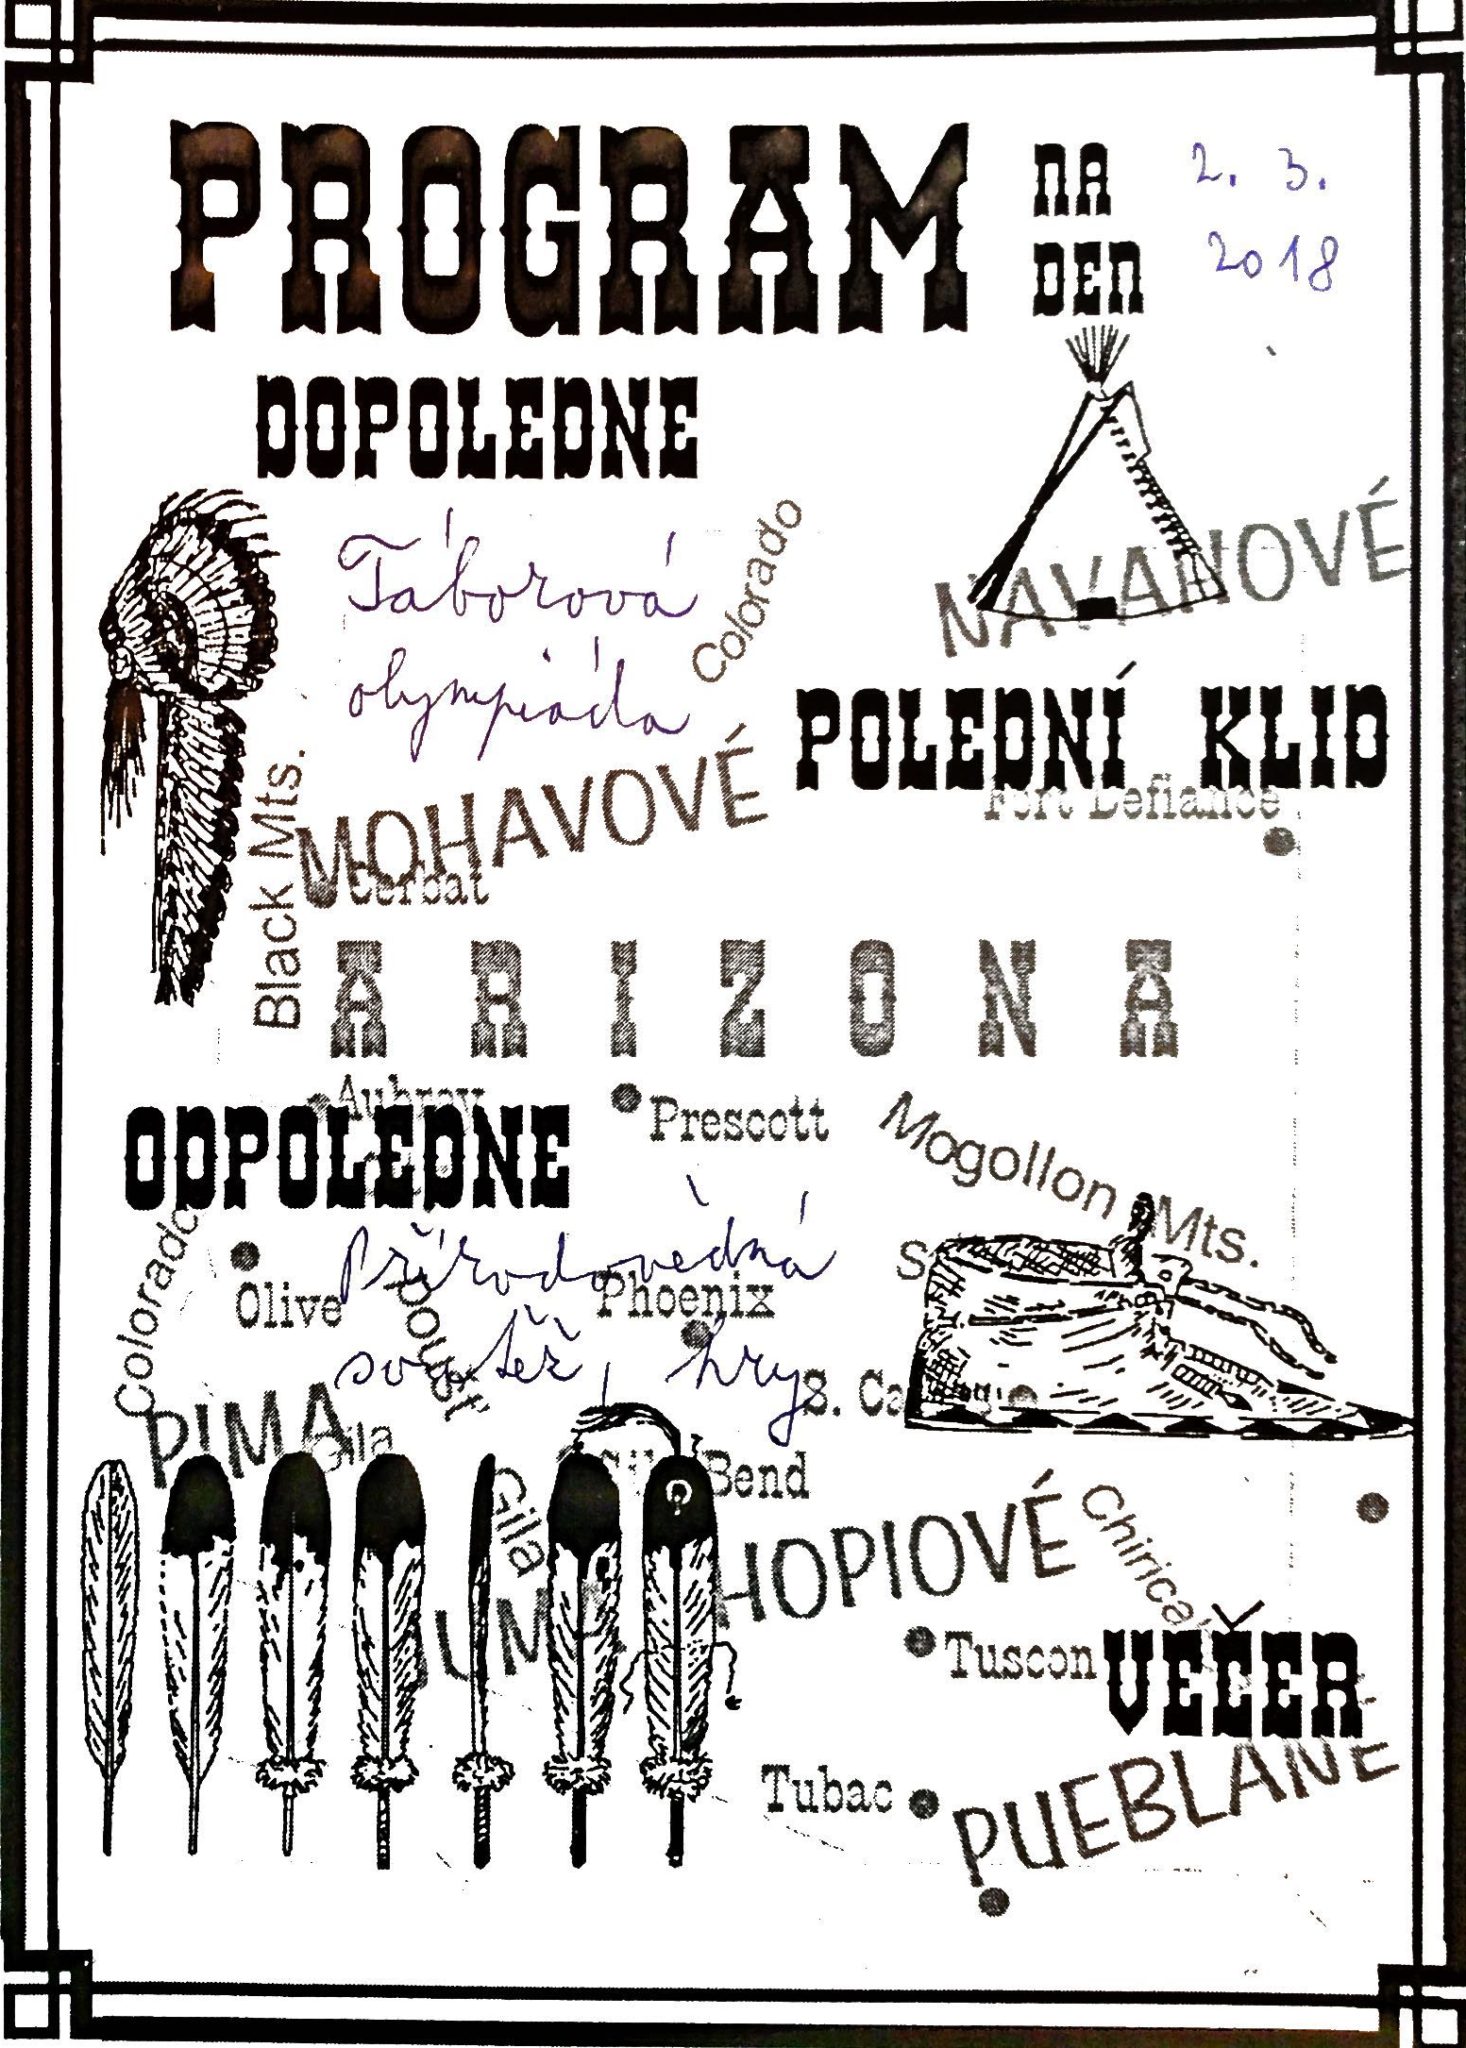 PROGRAM NA 2. 3.
DEN 2018
DOPOLEDNE
Táborová
olympiáda
Colorado
NAVAHOVÉ
POLEDNÍ KLID
Fort Defiance
MOHAVOVÉ
Cerbat
Black Mts.
ARIZONA
Aubrey
Prescott
ODPOLEDNE
Mogollon Mts.
Colorado
Olive
Přírodovědná
Phoenix
soutěž, hry
PIMA
Gila
Bend
Gila
HOPIOVÉ
YUMA
Tuscon
VEČER
Tubac
PUEBLANÉ